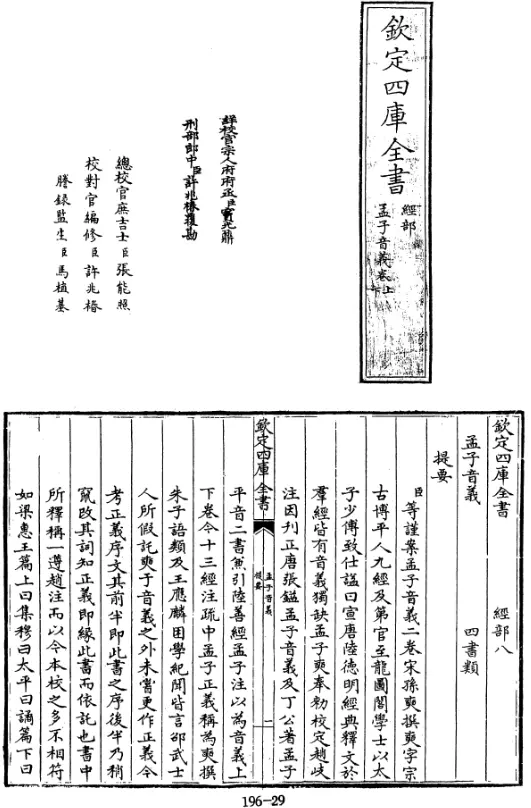 欽定四庫全書
經部
孟子音義卷上
詳校官宗人府府丞臣竇光鼐
刑部郎中臣許兆椿覆勘
總校官庶吉士臣張能照
校對官編修臣許兆椿
謄錄監生臣馬植基
欽定四庫全書 經部八
孟子音義 四書類
提要
臣等謹案孟子音義二卷宋孫奭撰奭字宗
古博平人九經及第官至龍圖閣學士以太
子少傅致仕諡曰宣唐陸德明經典釋文於
羣經皆有音義獨缺孟子奭奉勅校定趙岐
注因刋正唐張鎰孟子音義及丁公著孟子
欽定四庫全書
孟子音義
提要
一
平音二書兼引陸善經孟子注以為音義上
下卷今十三經注疏中孟子正義稱為奭撰
朱子語類及王應麟困學紀聞皆言邵武士
人所假託奭于音義之外未嘗更作正義今
考正義序文其前半即此書之序後半乃稍
竄改其詞知正義即緣此書而依託也書中
所釋稱一遵趙注而以今本校之多不相符
如梁惠王篇上曰集穆曰太平曰誦篇下曰
196-29